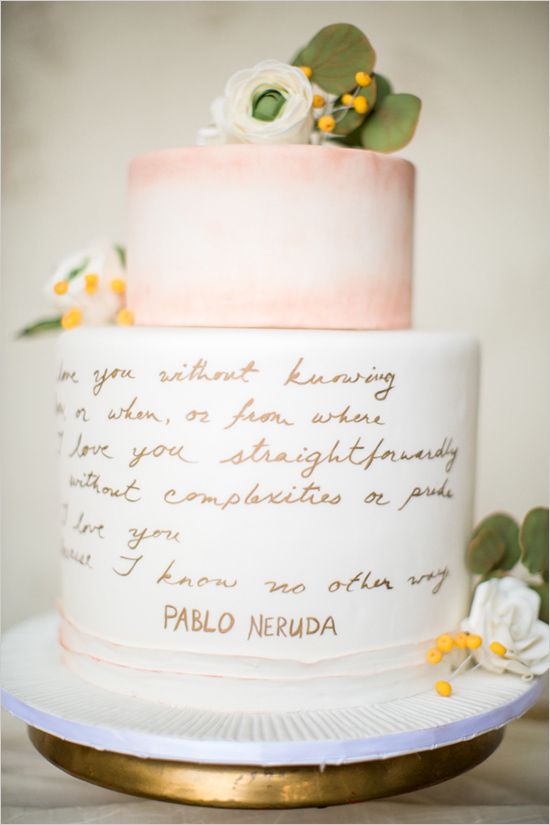 love you without knowing
how or when, or from where
I love you straightforwardly
without complexities or pride
I love you
because I know no other way
PABLO NERUDA